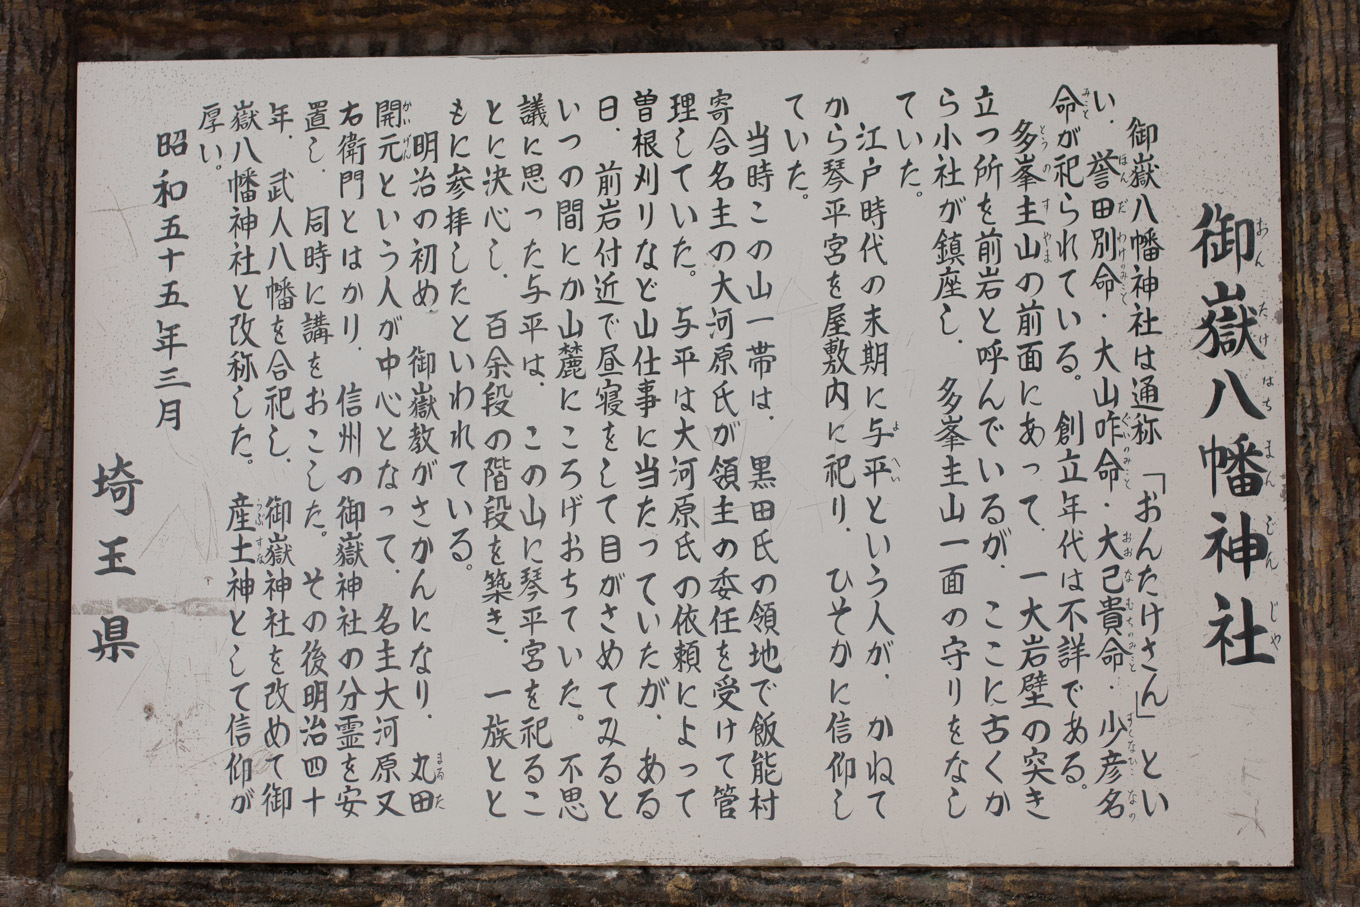 御嶽八幡神社
御嶽八幡神社は通称「おんたけさん」とい
い、誉田別命・大山咋命・大己貴命・少彦名
命が祀られている。創立年代は不詳である。
多峯主山の前面にあって、一大岩壁の突き
立つ所を前岩と呼んでいるが、ここに古くか
ら小社が鎮座し、多峯主山一面の守りをなし
ていた。
江戸時代の末期に与平という人が、かねて
から琴平宮を屋敷内に祀り、ひそかに信仰し
ていた。
当時この山一帯は、黒田氏の領地で飯能村
寄合名主の大河原氏が領主の委任を受けて管
理していた。与平は大河原氏の依頼によって
曽根刈りなど山仕事に当たっていたが、ある
日、前岩付近で昼寝をして目がさめてみると
いつの間にか山麓にころげおちていた。不思
議に思った与平は、この山に琴平宮を祀るこ
とに決心し、百余段の階段を築き、一族とと
もに参拝したといわれている。
明治の初め、御嶽教がさかんになり、丸田
開元という人が中心となって、名主大河原又
右衛門とはかり、信州の御嶽神社の分霊を安
置し、同時に講をおこした。その後明治四十
年、武人八幡を合祀し、御嶽神社を改めて御
嶽八幡神社と改称した。産土神として信仰が
厚い。
昭和五十五年三月
埼玉県